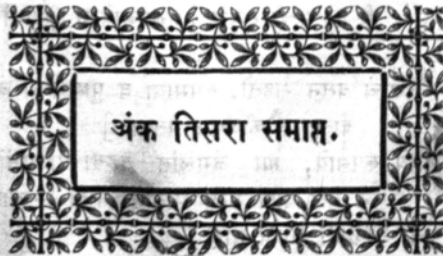 अंक तिसरा समाप्त.